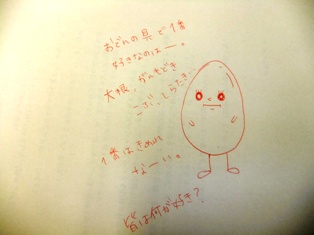 おでんの具で1番
好きなのはー。
大根、がんもどき
こぶ、しらたき、
1番はきめれ
なーい。
皆は何が好き？